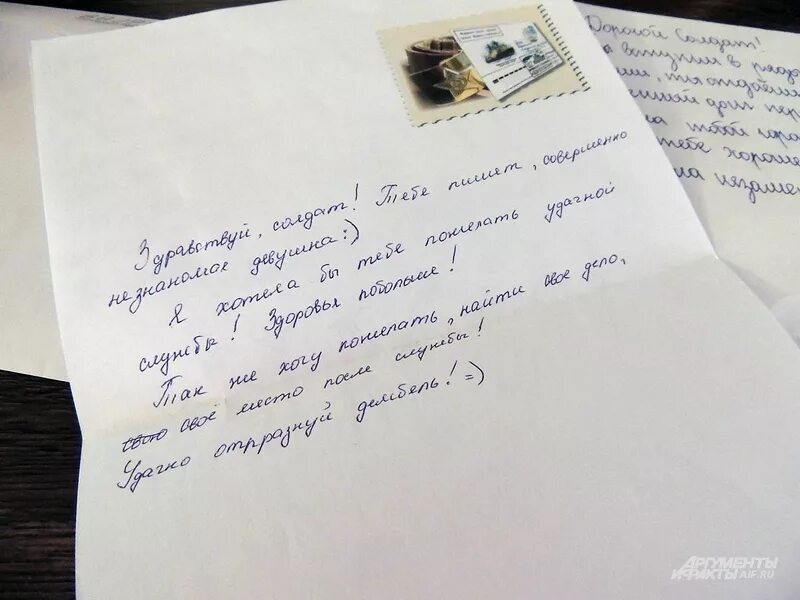 Здравствуй, солдат! Тебе пишет, совершенно
незнакомая девушка:)
Я хотела бы тебе пожелать удачной
службы! Здоровья побольше!
Так же хочу пожелать, найти свое дело,
свою своё место после службы!
Удачно отпразнуй дембель! =)
Дорогой Солдат!
вступил в ряды
ты отдаёшь
долг
твой
тебе хорошо
АРГУМЕНТЫ
И ФАКТЫ AIF.RU